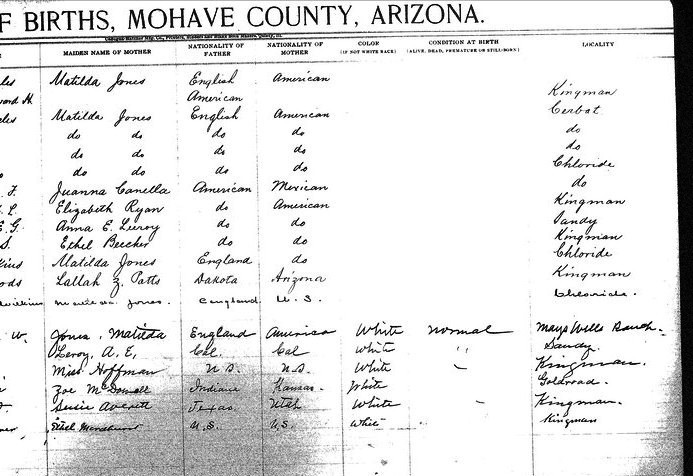 F BIRTHS, MOHAVE COUNTY, ARIZONA.
MAIDEN NAME OF MOTHER NATIONALITY OF FATHER NATIONALITY OF MOTHER COLOR (IF NOT WHITE RACE) CONDITION AT BIRTH (ALIVE, DEAD, PREMATURE OR STILL-BORN) LOCALITY
les Matilda Jones English American
ard H. American Kingman
les Matilda Jones English American Cerbat
do do do do do
do do do do do
do do do do Chloride
F. Juanna Canella American Mexican do
L. Elizabeth Ryan do American Kingman
E. G. Anna E. Leeroy do do Sandy
S. Ethel Beecher do do Kingman
kins Matilda Jones England do Chloride
ods Lallah Z. Patts Dakota Arizona Kingman
Matilda Jones. England U. S. Chloride.
W. Jones, Matilda England America White normal Mays Wells Ranch.
Leroy, A. E, Cal Cal White " Sandy.
Miss Hoffman U.S. U.S. White Kingman.
Zoe McDowell Indiana Kansas. White Goldroad.
Susie Averett Texas Utah White Kingman.
ner Ethel U.S. U.S. White Kingman